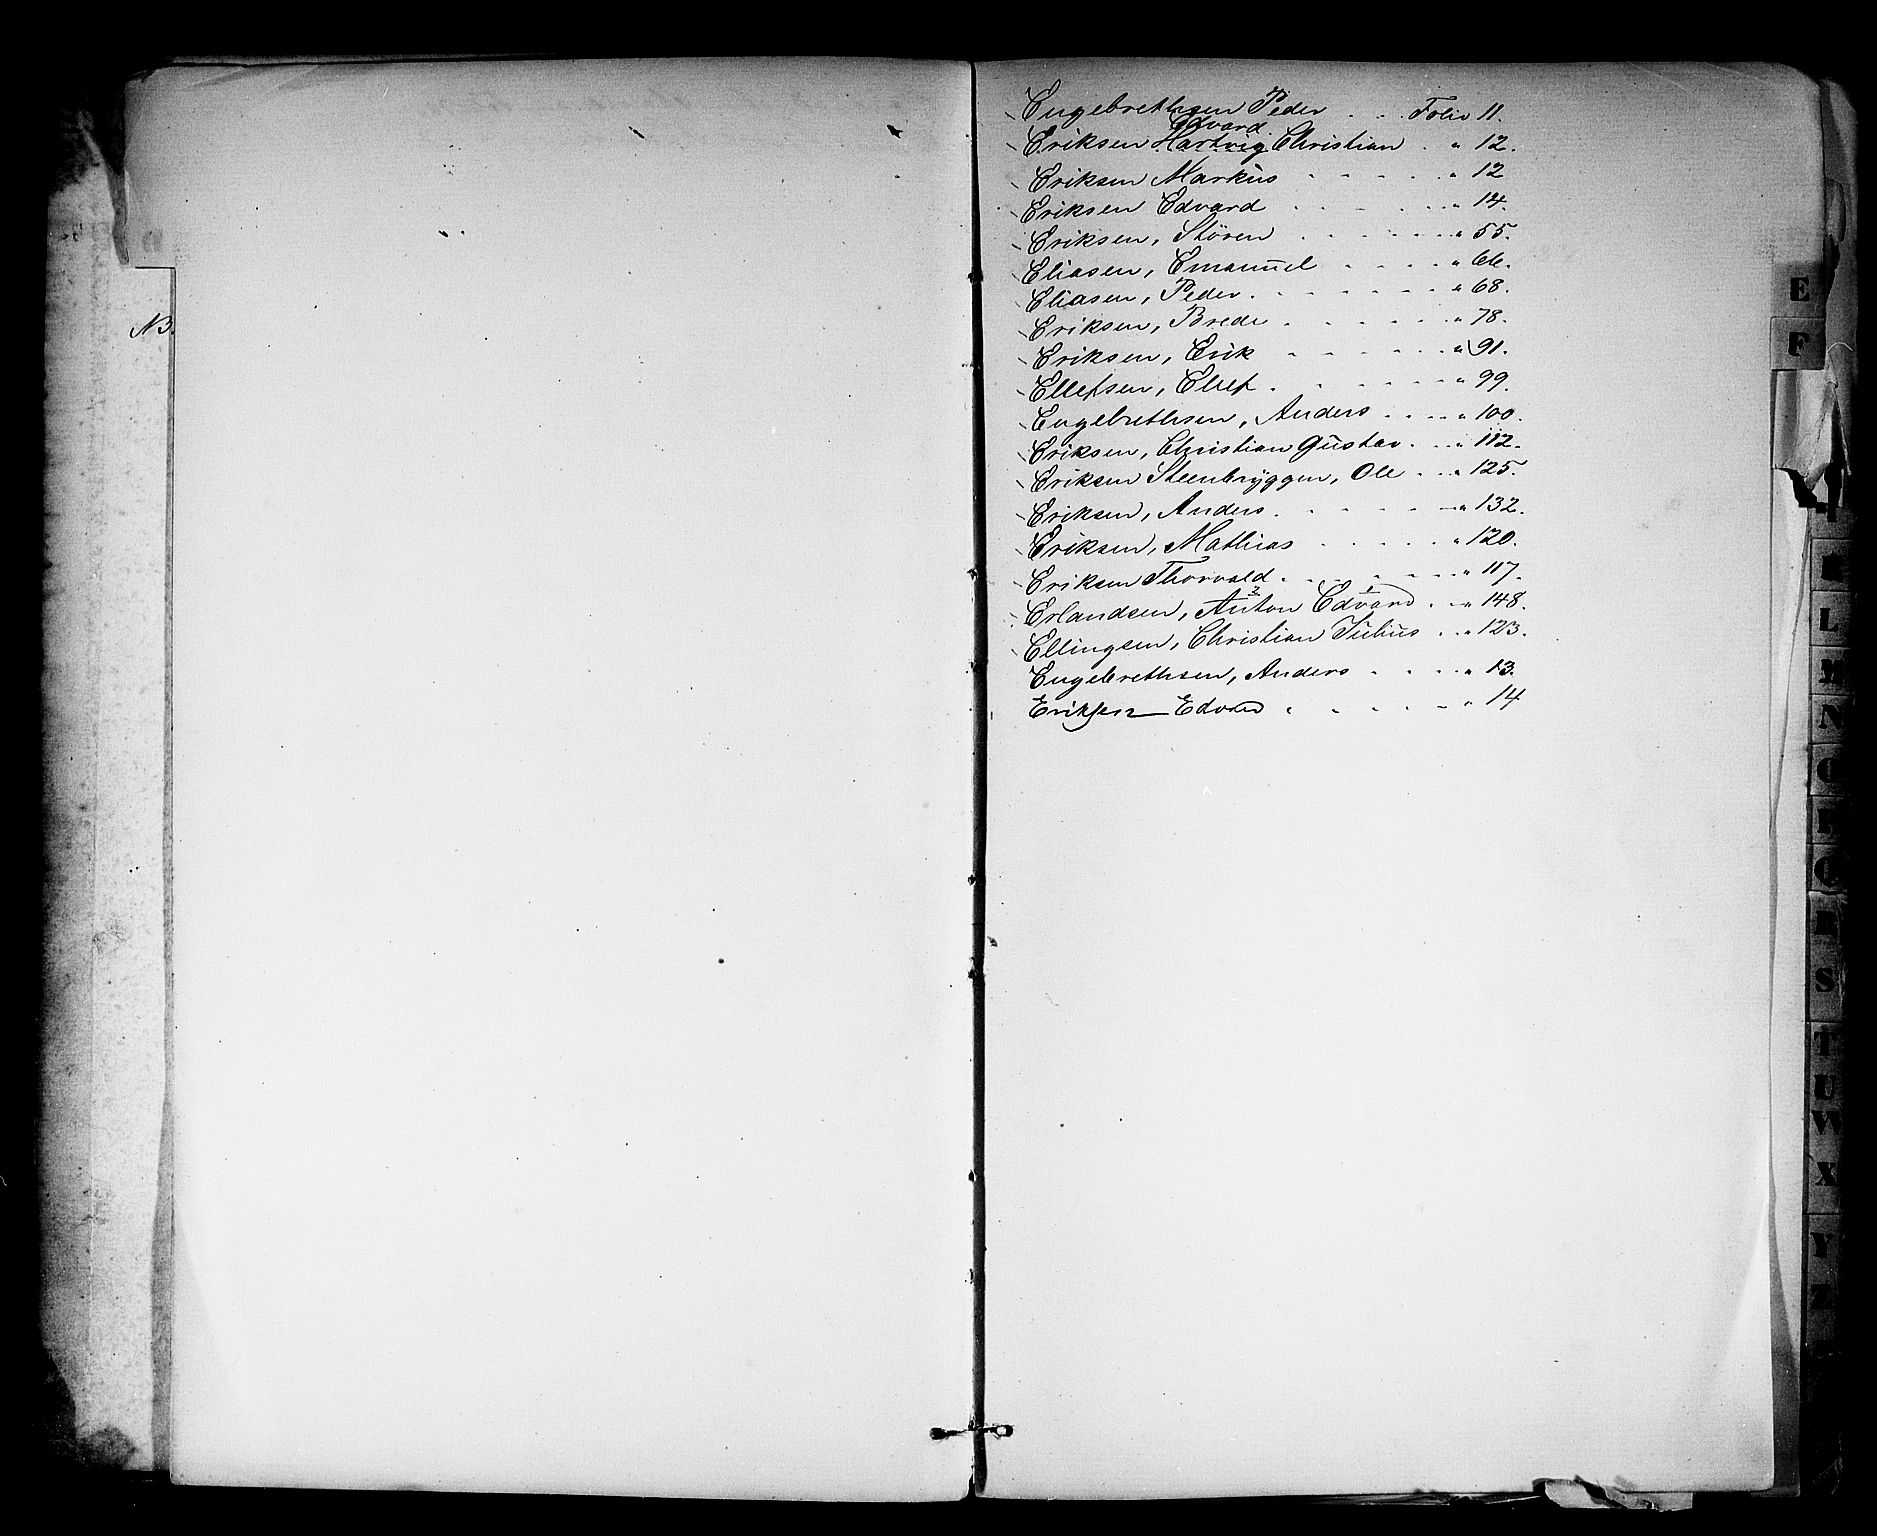 NB.
Engebrethsen Peder . . . Folio 11.
Edvard
Eriksen Hartvig Christian . " 12.
Eriksen Markus . . . . . " 12
Eriksen Edvard . . . . . " 14.
Eriksen, Stören . . . . . " 55.
Eliasen, Emanuel . . . . " 66.
Eliasen, Peder . . . . . . " 68.
Eriksen, Brede . . . . . " 78.
Eriksen, Erik . . . . . " 91.
Ellefsen, Ellef . . . . . " 99.
Engebrethsen, Anders . . . . " 100.
Eriksen, Christian Gustav . . . " 112.
Eriksen Steenbryggen, Ole . . . " 125.
Eriksen, Anders . . . . . " 132.
Eriksen, Mathias . . . . . " 120.
Eriksen Thorvald . . . . . " 117.
Erlandsen, Anton Edvard . . " 148.
Ellingsen, Christian Julius . . " 123.
Engebrethsen, Anders . . . . " 13.
Eriksen Edvard . . . . . " 14
E
F
L
N
S
T
U
W
X
Y